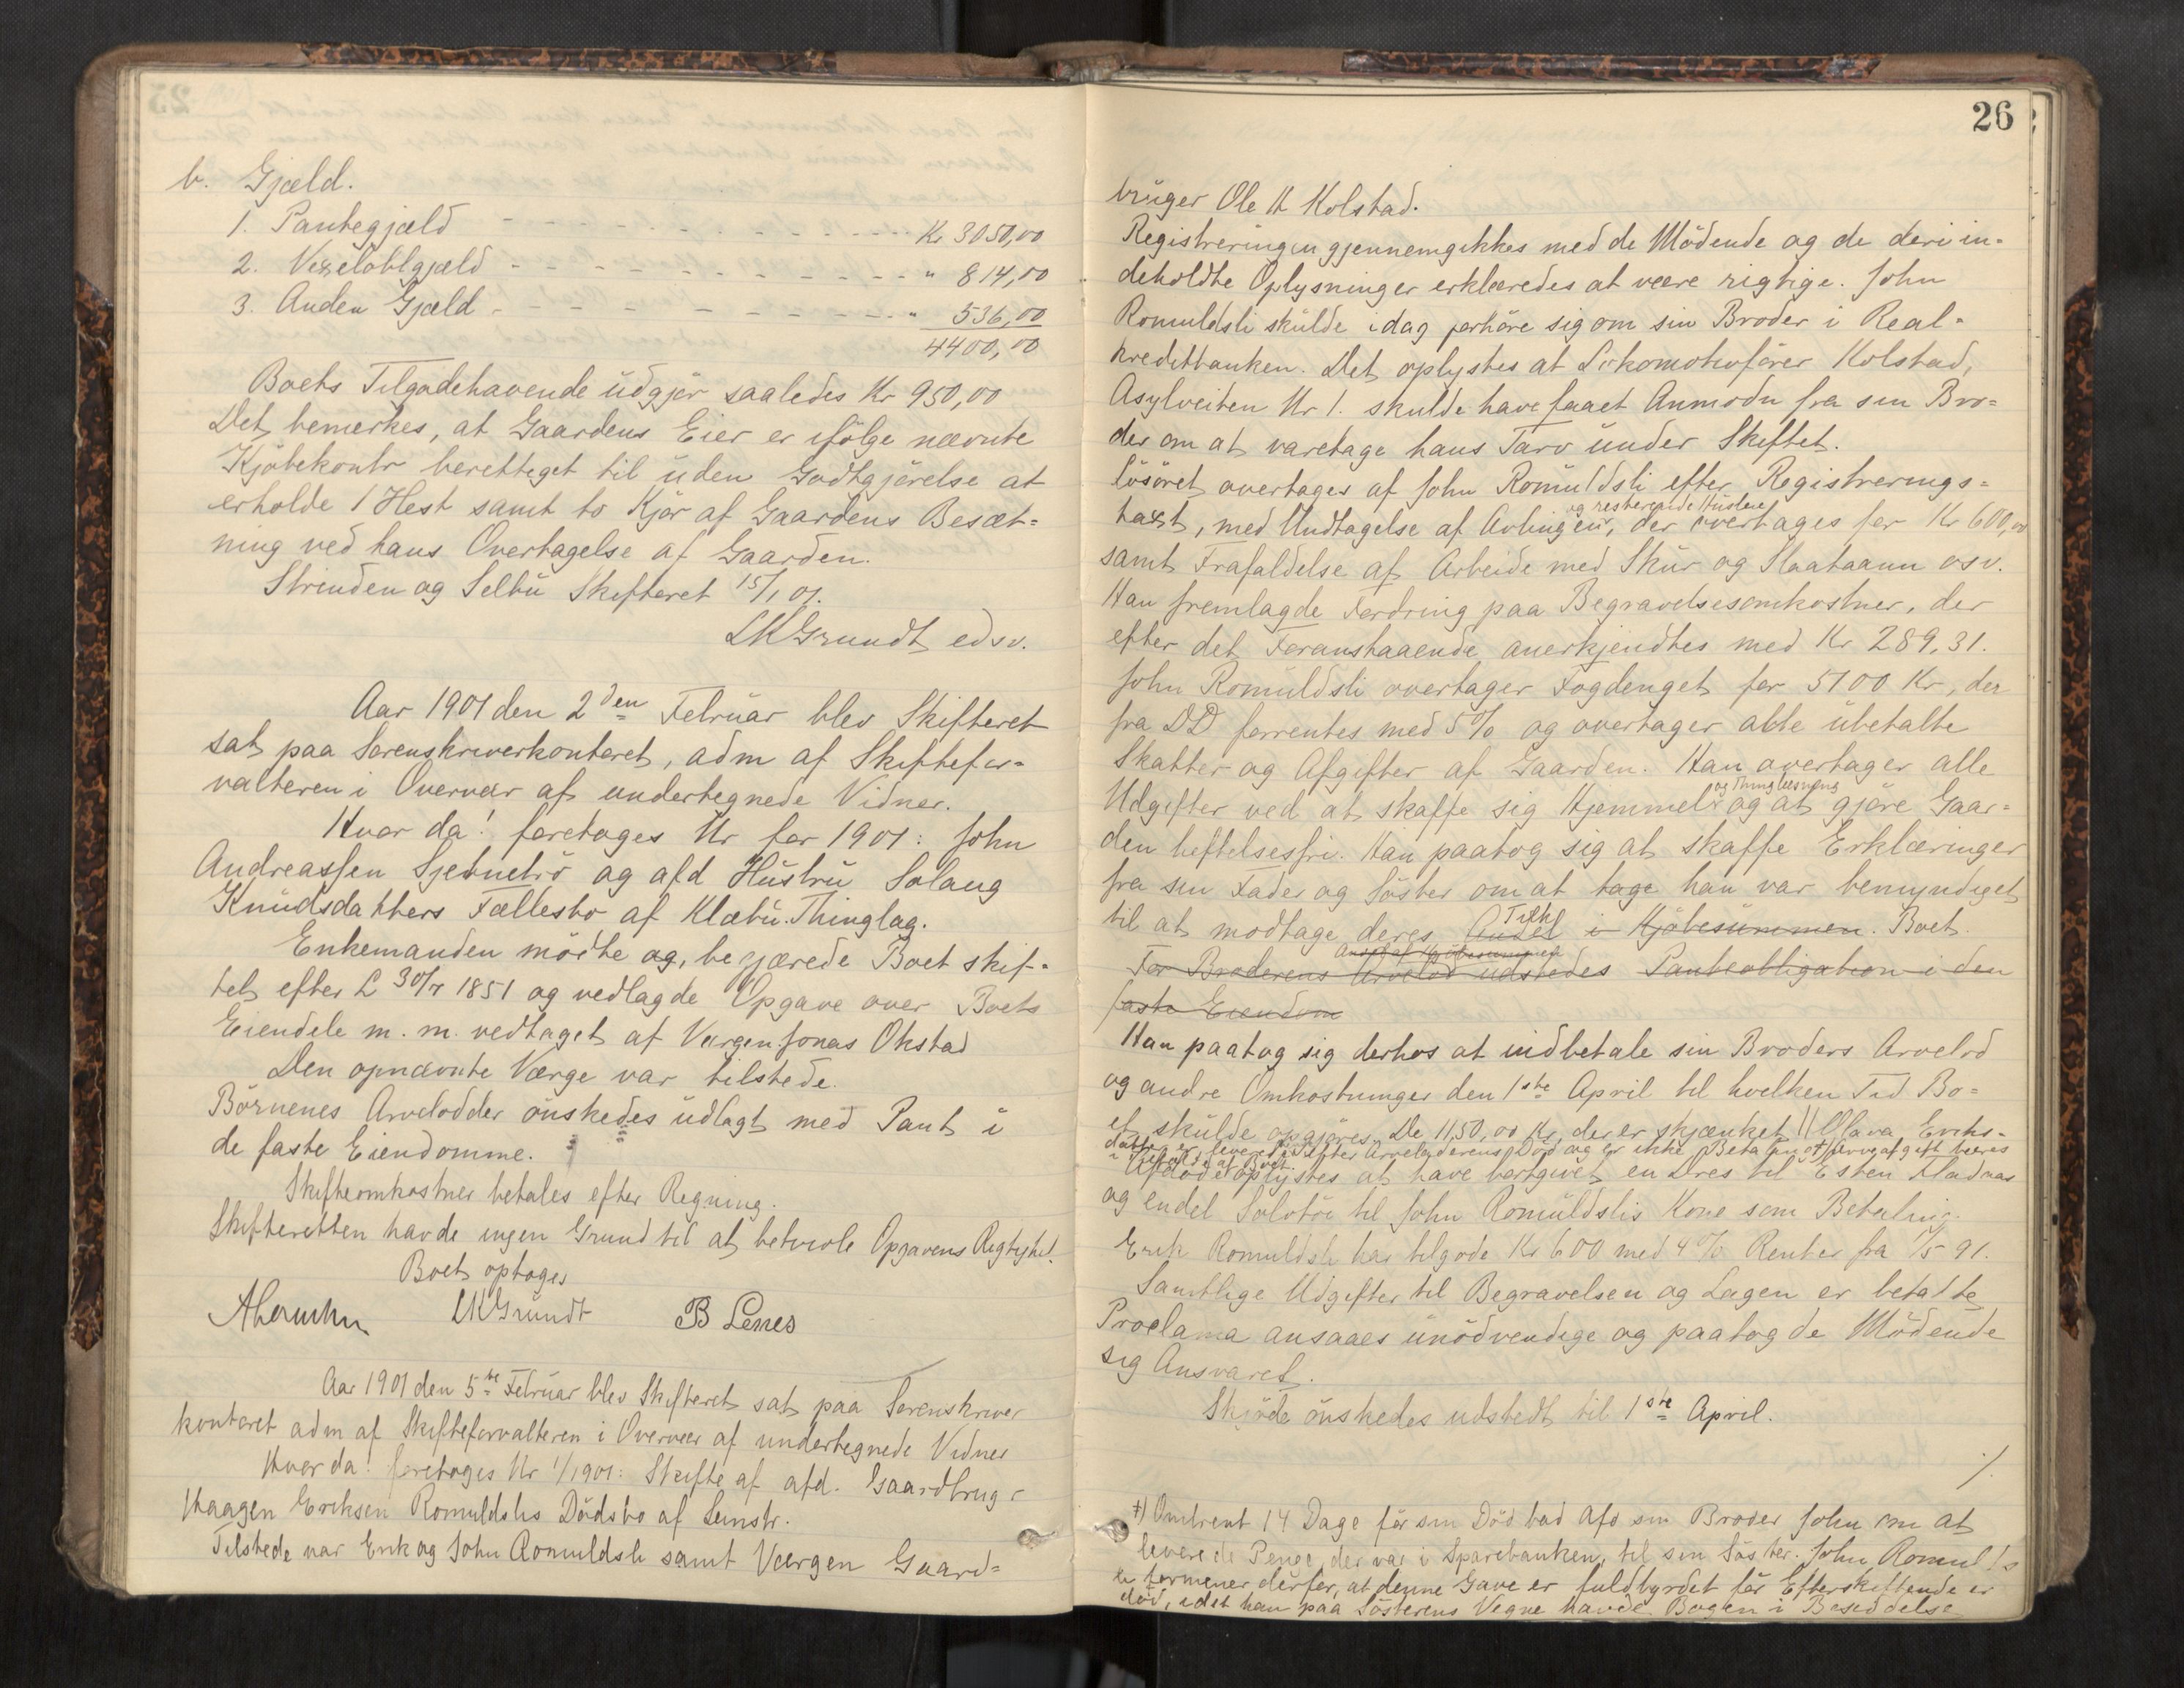 b. Gjæld.
1. Pantegjæld - - - - - - - - - - Kr 3050,00
2. Vexeloblgjæld - - - - - - - - - - " 814,00
3. Anden Gjæld - - - - - - - - - - " 536,00
4400,00
Boets Tilgodehavende üdgjør saaledes Kr 950,00
Det bemerkes, at Gaardens Eier er ifölge nævnte
Kjöbekontr berettiget til üden Godtgjörelse at
erholde 1 Hest samt to Kjör af Gaardens Besæt=
ning ved hans Overtagelse af Gaarden.
Strinden og Selbü Skifteret 15/1 01.
LKGrundt edsv.
Aar 1901 den 2den Februar blev Skifteret
sat paa Sorenskriverkontoret, adm af Skiftefor=
valteren i Overvær af undertegnede Vidner.
Hvor da! foretoges Nr for 1901: John
Andreassen Sjetnetrö og afd Hüstrü Solaug
Knüdsdatters Fællesbo af Klæbü Thinglag.
Enkemanden mödte og, begjærede Boet skif=
tet efter L 30/7 1851 og vedlagde Opgave over Boets
Eiendele m. m. vedtaget af Værgen Jonas Okstad
Den opnævnte Værge var tilstede.
Börnenes Arvelodder önskedes üdlagt med Pant i
de faste Eiendomme.
Skifteomkostner betales efter Regning.
Skifteretten havde ingen Grund til at betvivle Opgavens Rigtighet.
Boet optoges
LKGrundt B Lenes
Aar 1901 den 5te Februar blev Skifteret sat paa Sorenskriver
kontoret adm af Skifteforvalteren i Overvær af undertegnede Vidner
Hvor da! foretoges Nr 1/1901: Skifte af afd. Gaardbruger
Haagen Eriksen Romuldslis Dödsbo af Leinstr.
Tilstede var Erik og John Romuldsli samt Værgen Gaard=
26
brüger Ole H Kolstad.
Registreringen gjennemgikkes med de Mödende og de deri in=
deholdte Oplysninger erklæredes at være rigtige. John
Romuldsli skülde idag forhöre sig om sin Broder i Real=
kreditbanken. Det oplystes at Lokomotivförer Kolstad,
Asylveiten Nr 1. skulde have faaet Anmodn fra sin Bro=
der om at varetage hans Tarv ünder Skiftet.
Lösöret overtages af John Romüldsli efter Registrerings=
og resterende Huslere
taxt, med Undtagelse af Avlingen, der overtages for Kr 600,00
samt Frafaldelse af Arbeide med Skür og Slaataann osv.
Han fremlagde Fordring paa Begravelsesomkostner, der
efter det Foranstaaende anerkjendtes med Kr 289,31.
John Romüldsli overtager Jogdenget for 5100 Kr, der
fra DD forrentes med 5% og overtager alle übetalte
Skatter og Afgifter af Gaarden. Han overtager alle
og Thinglæsning
Udgifter ved at skaffe sig Hjemmel og at gjöre Gaar=
den heftelsesfri. Han paatog sig at skaffe Erklæringer
fra sin Fader og Söster om at tage han var bemyndiget
Tilk
til at modtage deres Andel i Kjöbesummen. Boet.
Andel af Kjöbesummen
For Broderens Arvelod udstedes Panteobligation i den
faste Eiendom
Han paatog sig derhos at indbetale sin Broders Arvelod
og andre Omkostninger den 1ste April til hvilken Tid Bo=
et skülde opgjöres. De 1150,00 Kr, der er skjænket Olava Eriks=
datter er leveret efter Arveladerens Död og er ikke Betaling +) Arveafgift bæres
i Tilfælde af Boet.
Afdöde oplystes at have bortgivet en Dres til Esten
og endel Solvtöi til John Romüldslis Kone som Betaling.
Erik Romuldsli har tilgode Kr 600 med 4% Renter fra 1/5 91.
Samtlige Udgifter til Begravelsen og Lægen er betalte
Proclama ansaaes ünödvendige og paatog de Mödende
sig Ansvaret.
Skjöde önskedes udstedt til 1ste April.
./.
+) Omtrent 14 Dage för sin Död bad Afd sin Broder John om at
levere de Penge, der var i Sparebanken, til sin Söster. John Romulds
li formener derfor, at denne Gave er fuldbyrdet för Efterskiftende er
död, idet han paa Sösterens Vegne havde Bogen i Besiddelse